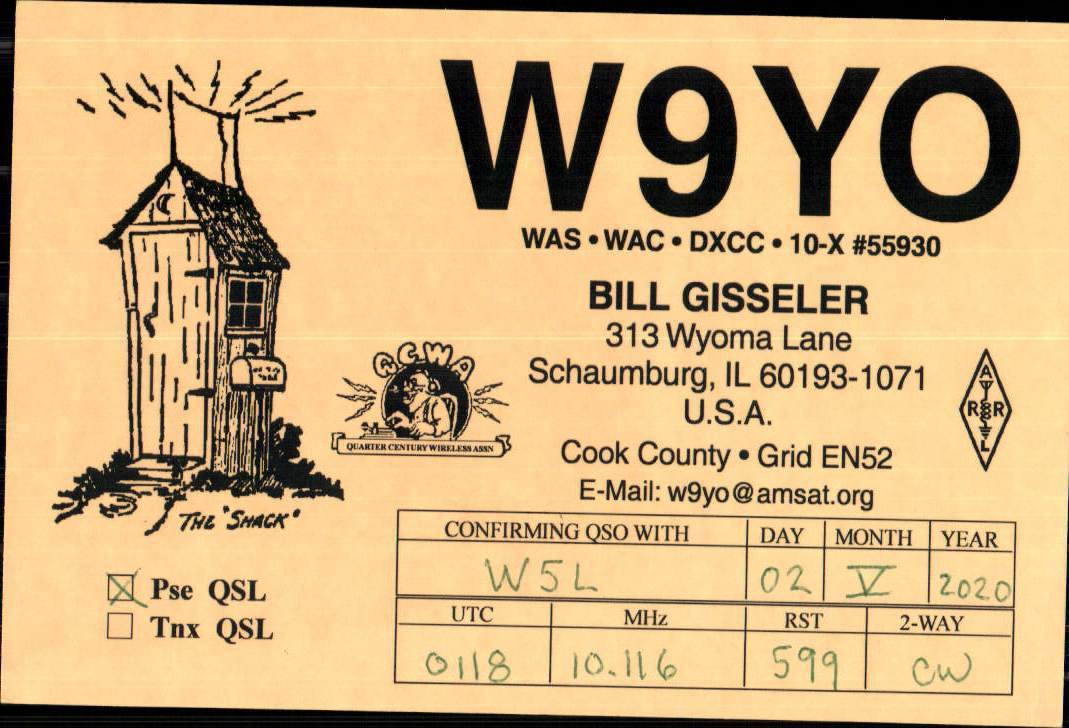 W9YO
WAS • WAC • DXCC • 10-X #55930
BILL GISSELER
313 Wyoma Lane
Schaumburg, IL 60193-1071
U.S.A.
Cook County • Grid EN52
E-Mail: w9yo@amsat.org
QCWA
QUARTER CENTURY WIRELESS ASSN
ARRL
THE "SHACK"
Pse QSL
Tnx QSL
CONFIRMING QSO WITH DAY MONTH YEAR
W5L 02 V 2020
UTC MHz RST 2-WAY
0118 10.116 599 CW